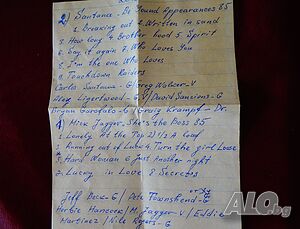 2) Santana - Be Yound Appearances 85
1. Breaking out 2. Written in sand
3. How long 4 Brother hood 5 Spirit
6. Say it again 7. Who Loves You
8. I'm the one Who Loves
9. Touchdown Raiders
Carlos Santana - G / Greg Walker - V
Alex Ligertwood - G V / David Sancious - G
Bryan Garofalo - G / Craig Krampf - Dr.
1) Mick Jagger - She's the Boss 85
1. Lonely At the Top 2) 1/2 A Loaf
3. Running out of Luck 4. Turn the girl Loose
5. Hard Woman 6 Just Another night
7. Lucky in Love 8 Secrets
Jeff Beck - G / Pete Townshend - G
Herbie Hancock / M. Jagger - V / Eddie
Martinez / Nile Rogers - G
ALO.bg